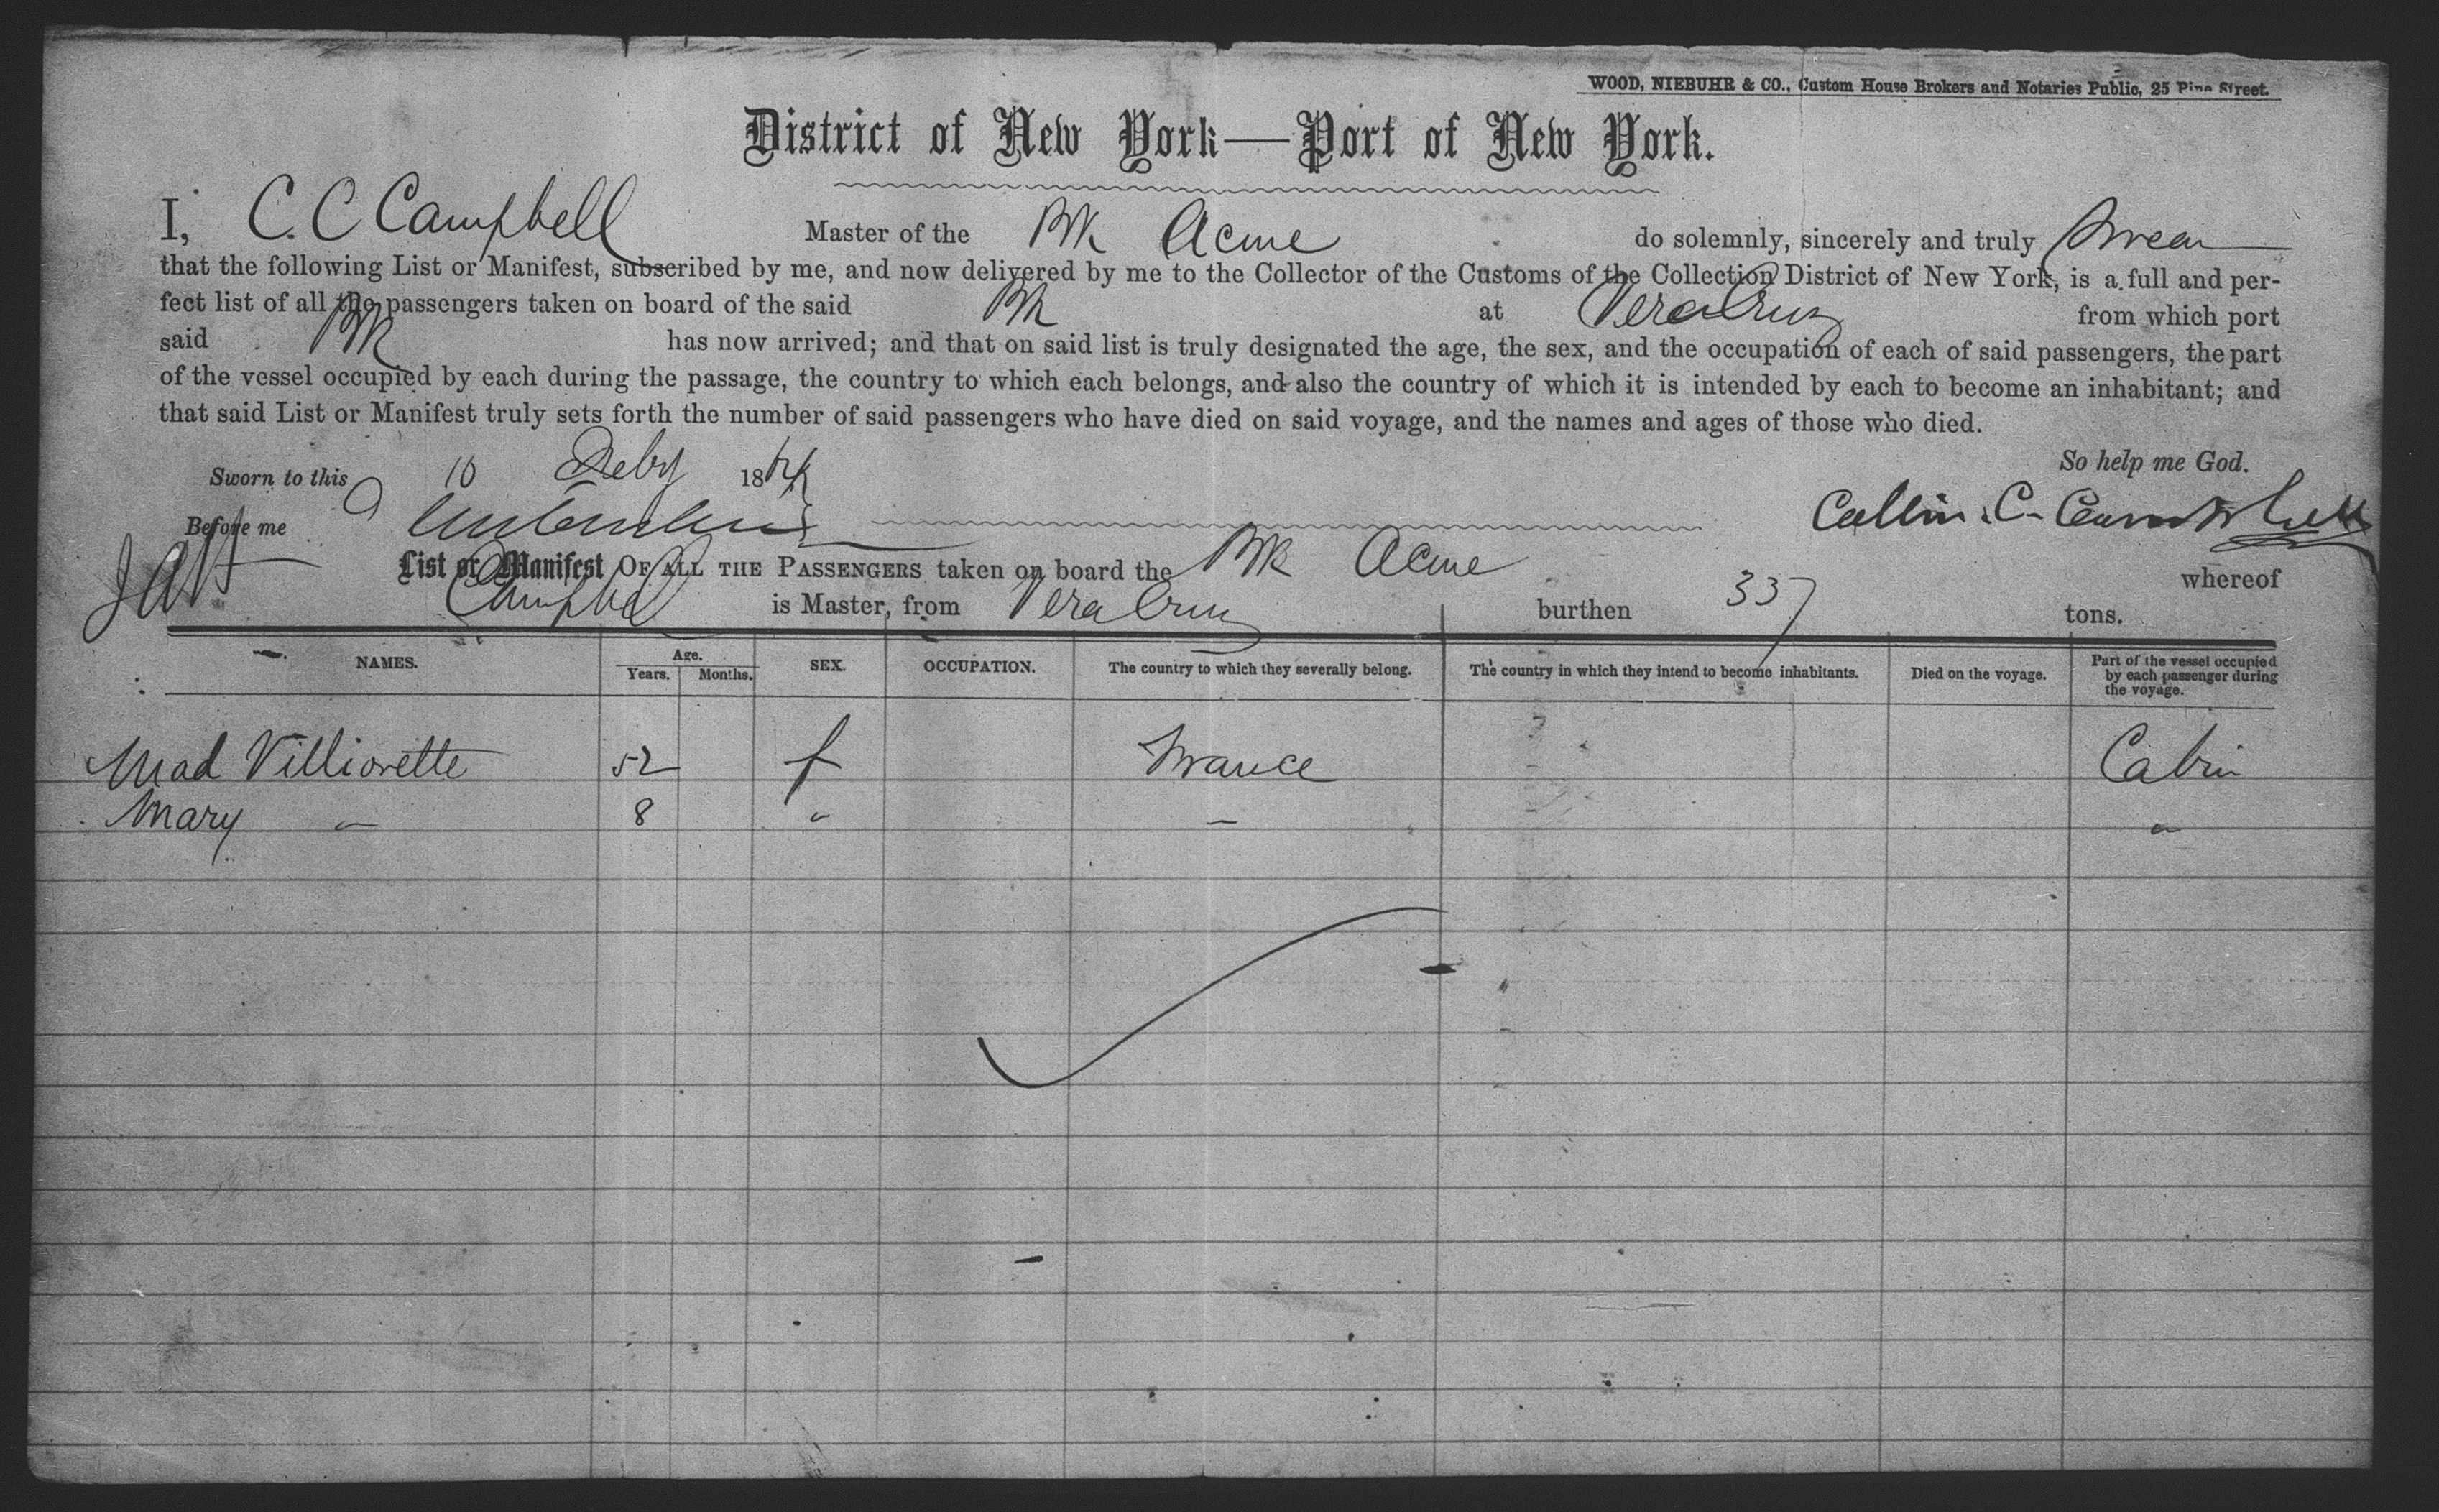 WOOD, NIEBUHR & CO., Custom House Brokers and Notaries Public, 25 Pine Street.
District of New York—Port of New York.
I, C. C Campbell Master of the Bk Acme do solemnly, sincerely and truly Swear
that the following List or Manifest, subscribed by me, and now delivered by me to the Collector of the Customs of the Collection District of New York, is a full and per-
fect list of all the passengers taken on board of the said Bk at Vera Cruz from which port
said Bk has now arrived; and that on said list is truly designated the age, the sex, and the occupation of each of said passengers, the part
of the vessel occupied by each during the passage, the country to which each belongs, and also the country of which it is intended by each to become an inhabitant; and
that said List or Manifest truly sets forth the number of said passengers who have died on said voyage, and the names and ages of those who died.
So help me God.
Sworn to this 10 Feby 18
Before me
Collin. C. Campbell
List or Manifest OF ALL THE PASSENGERS taken on board the Bk Acme whereof
Campbell is Master, from Vera Cruz burthen 337 tons.
NAMES. Age. Years. Months. SEX. OCCUPATION. The country to which they severally belong. The country in which they intend to become inhabitants. Died on the voyage. Part of the vessel occupied by each passenger during the voyage.
Mad Villiorette 52 f France Cabin
Mary " 8 " " "